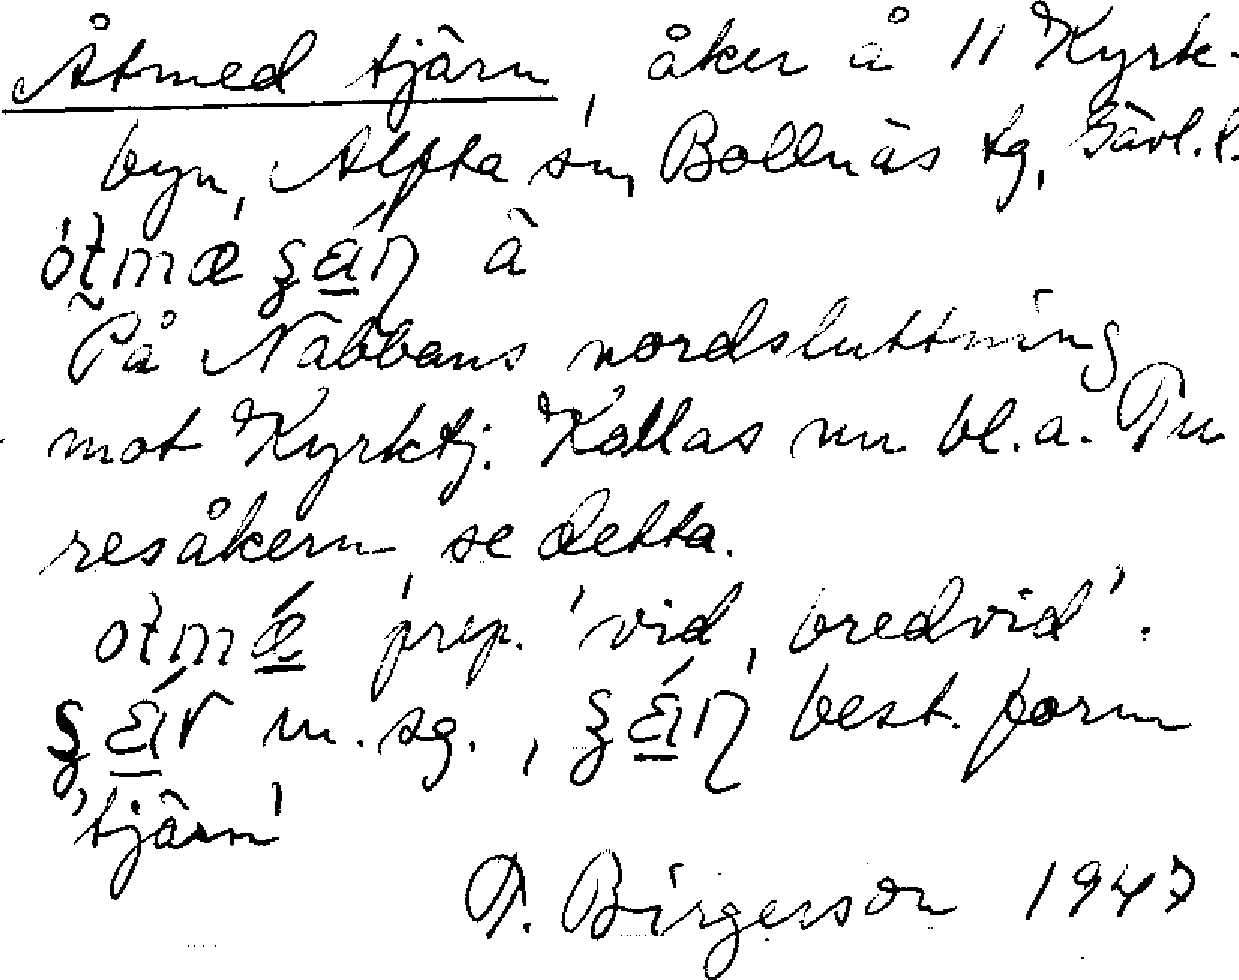 Åtmed tjärn, åker å 11 Kyrk-
byn, Alfta sn, Bollnäs tg, Gävl.l.
å
På Nabbans nordsluttning
mot Kyrktj. Kallas nu bl.a. Tu
resåkern, se detta.
prep. 'vid, bredvid'.
m. sg., best. form
'tjärn'
T. Birgerson 1947